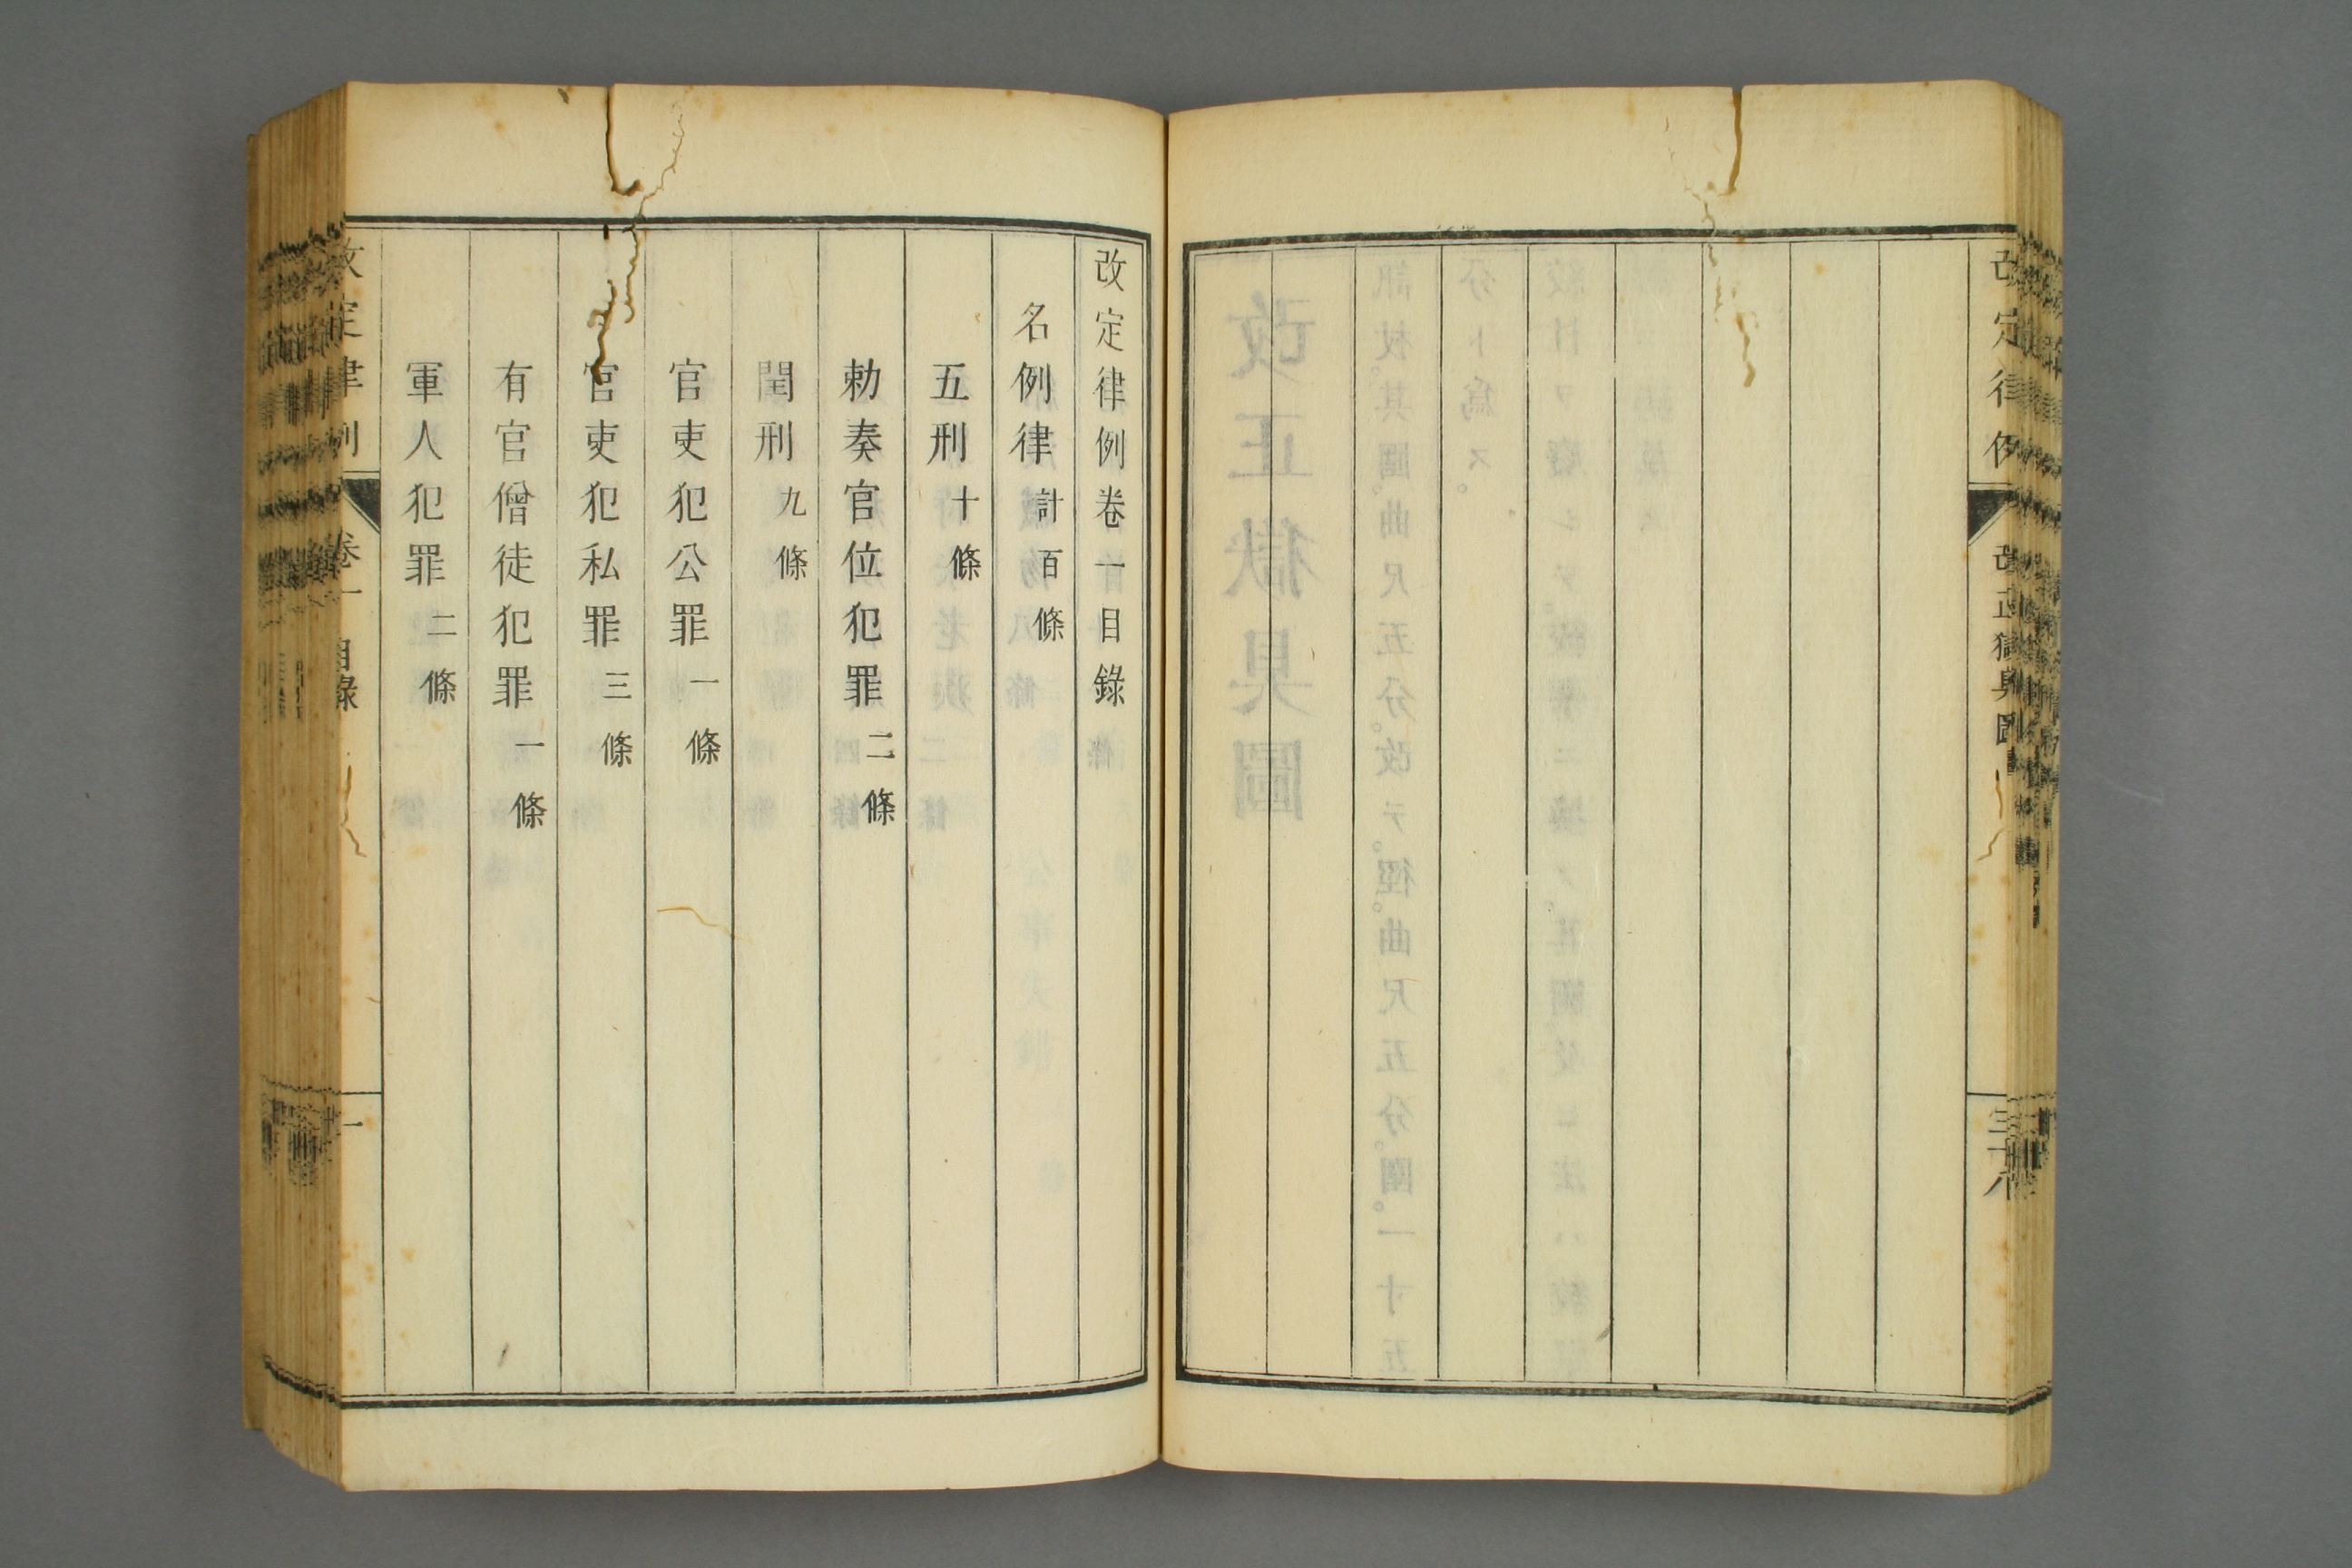 改定律例
改正獄具圖
三十八
改定律例卷一目錄
名例律計百條
五刑十條
勅奏官位犯罪二條
閏刑九條
官吏犯公罪一條
官吏犯私罪三條
有官僧徒犯罪一條
軍人犯罪二條
改定律例
卷一
目錄
一